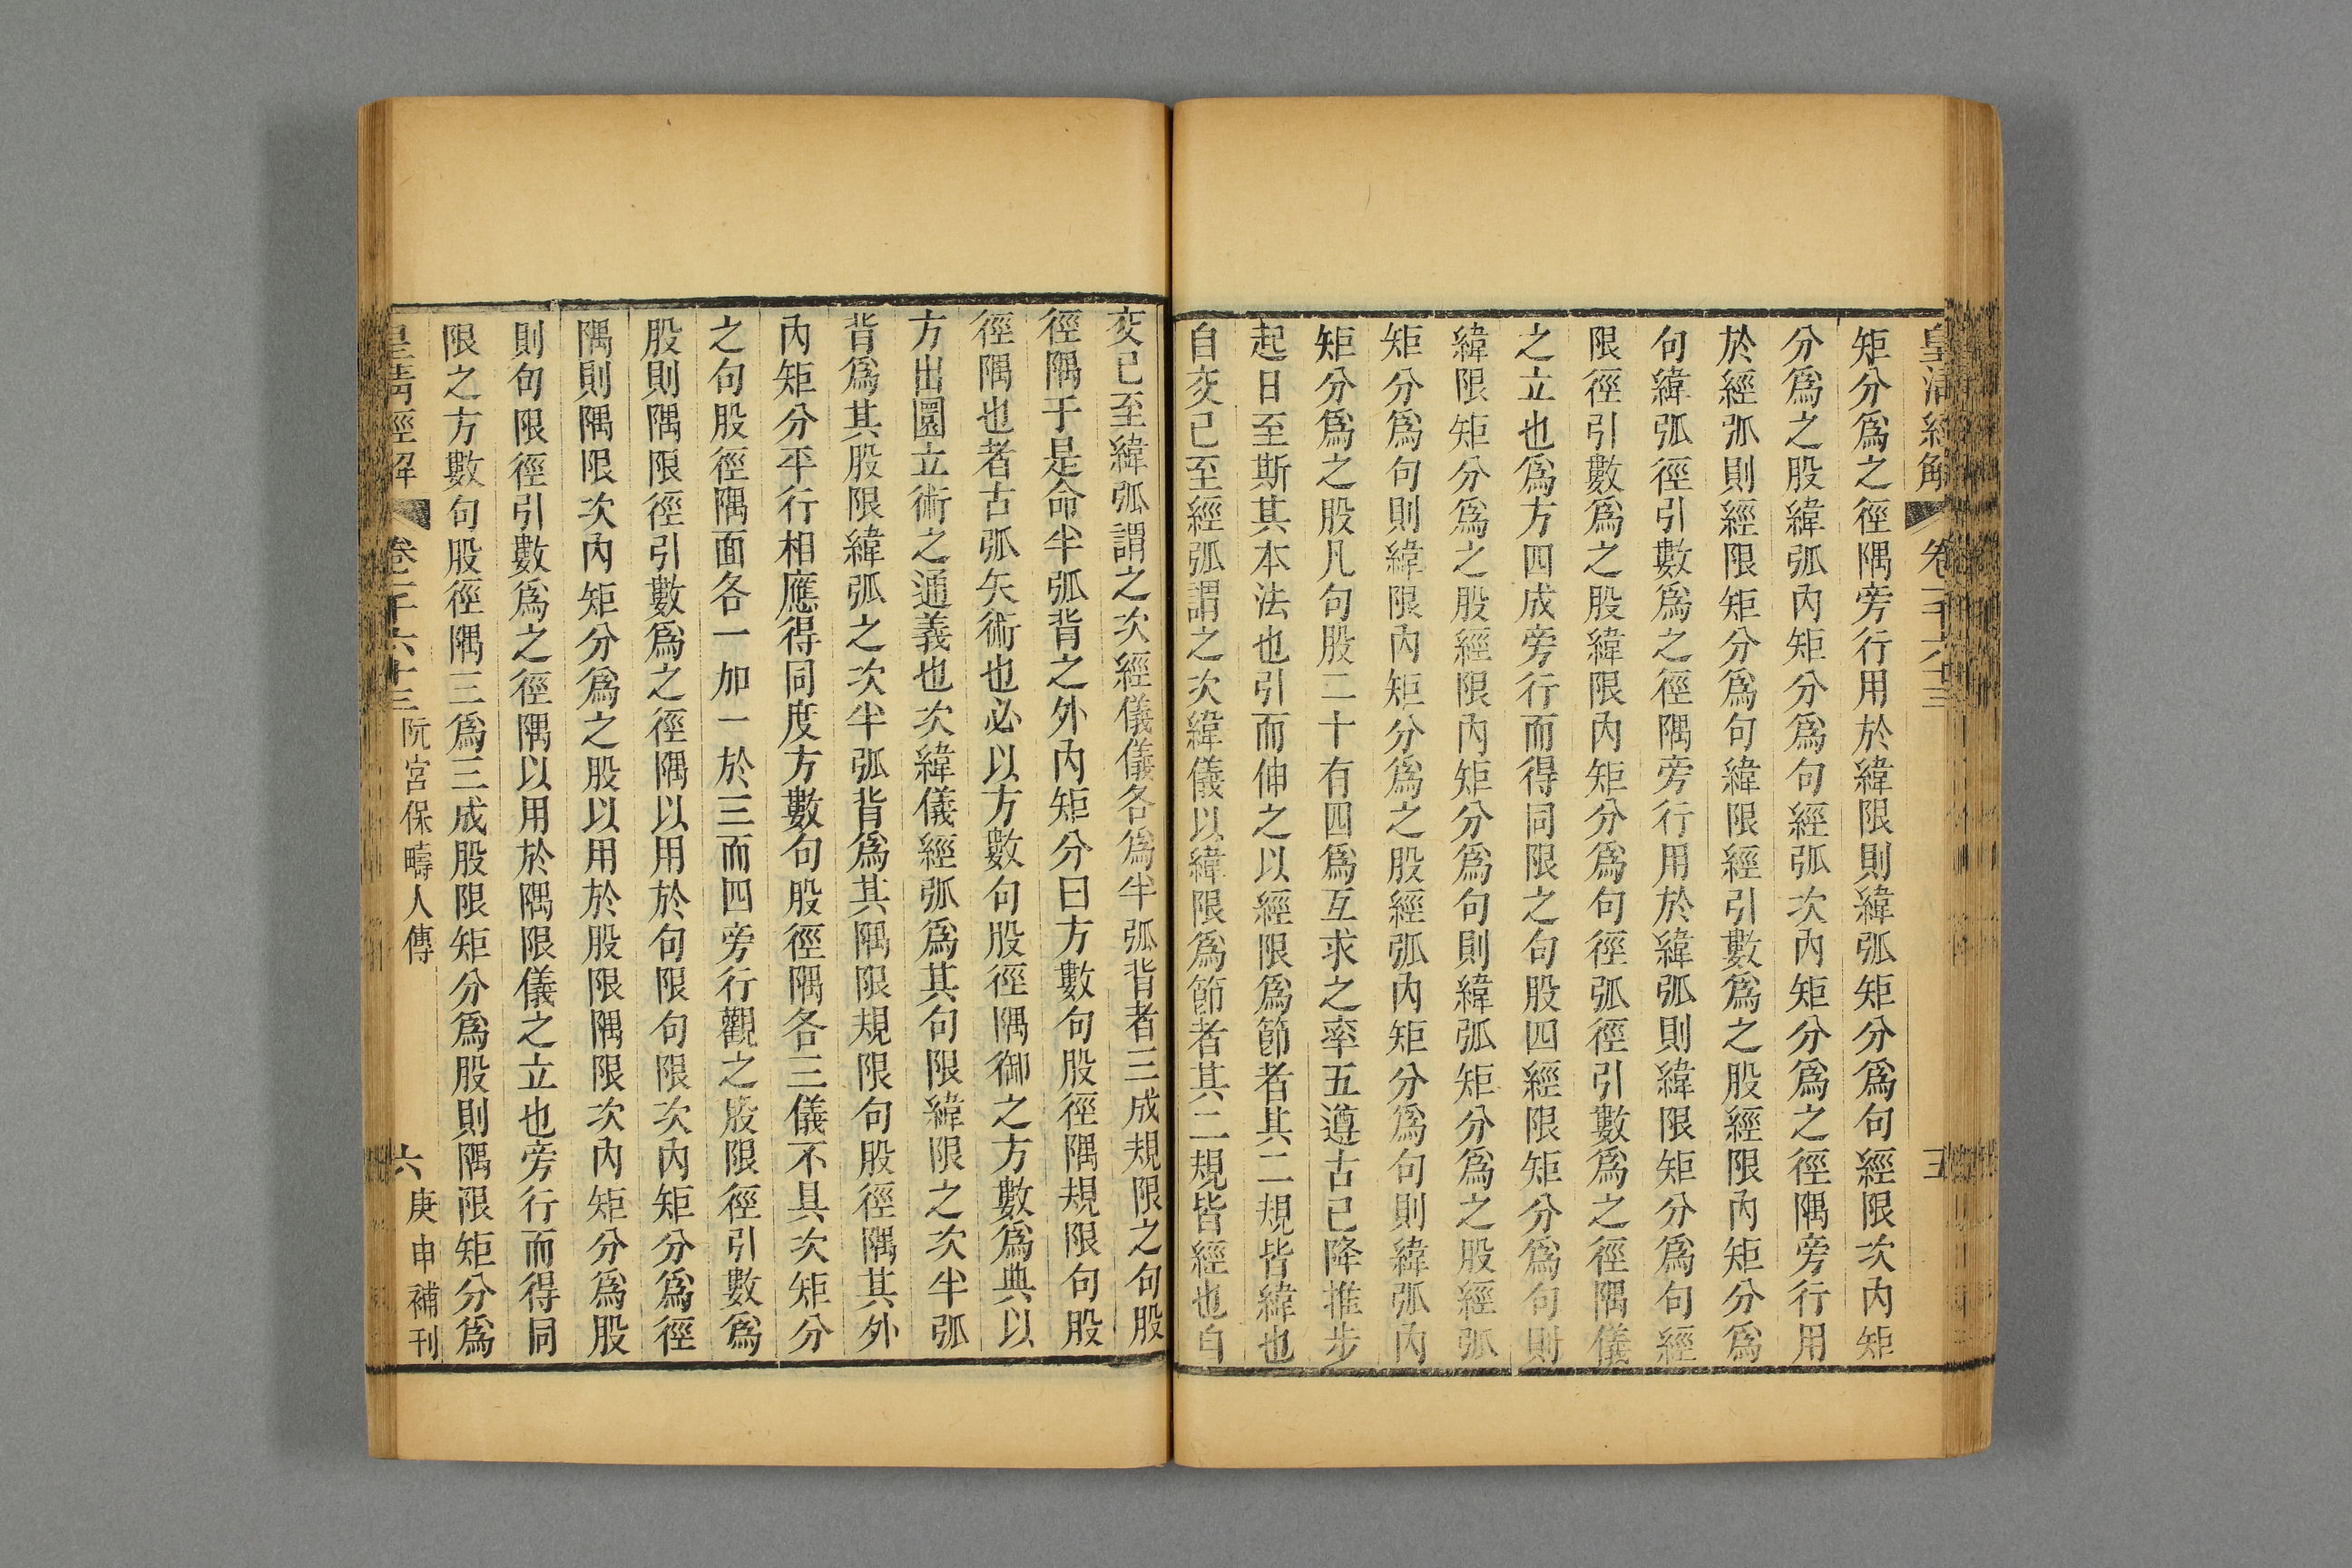 皇清經解 卷一千六十三 五
矩分爲之徑隅旁行用於緯限則緯弧矩分爲句經限次內矩
分爲之股緯弧內矩分爲句經弧次內矩分爲之徑隅旁行用
於經弧則經限矩分爲句緯限經引數爲之股經限內矩分爲
句緯弧徑引數爲之徑隅旁行用於緯弧則緯限矩分爲句經
限徑引數爲之股緯限內矩分爲句徑弧徑引數爲之徑隅儀
之立也爲方四成旁行而得同限之句股四經限矩分爲句則
緯限矩分爲之股經限內矩分爲句則緯弧矩分爲之股經弧
矩分爲句則緯限內矩分爲之股經弧內矩分爲句則緯弧內
矩分爲之股凡句股二十有四爲互求之率五遵古已降推步
起日至斯其本法也引而伸之以經限爲節者其二規皆緯也
自交已至經弧謂之次緯儀以緯限爲節者其二規皆經也自
交已至緯弧謂之次經儀儀各爲半弧背者三成規限之句股
徑隅于是命半弧背之外內矩分曰方數句股徑隅規限句股
徑隅也者古弧矢術也必以方數句股徑隅御之方數爲典以
方出圜立術之通義也次緯儀經弧爲其句限緯限之次半弧
背爲其股限緯弧之次半弧背爲其隅限規限句股徑隅其外
內矩分平行相應得同度方數句股徑隅各三儀不具次矩分
之句股徑隅面各一加一於三而四旁行觀之股限徑引數爲
股則隅限徑引數爲之徑隅以用於句限句限次內矩分爲徑
隅則隅限次內矩分爲之股以用於股限隅限次內矩分爲股
則句限徑引數爲之徑隅以用於隅限儀之立也旁行而得同
限之方數句股徑隅三爲三成股限矩分爲股則隅限矩分爲
皇清經解 卷一千六十三 阮宮保疇人傳 六 庚申補刊